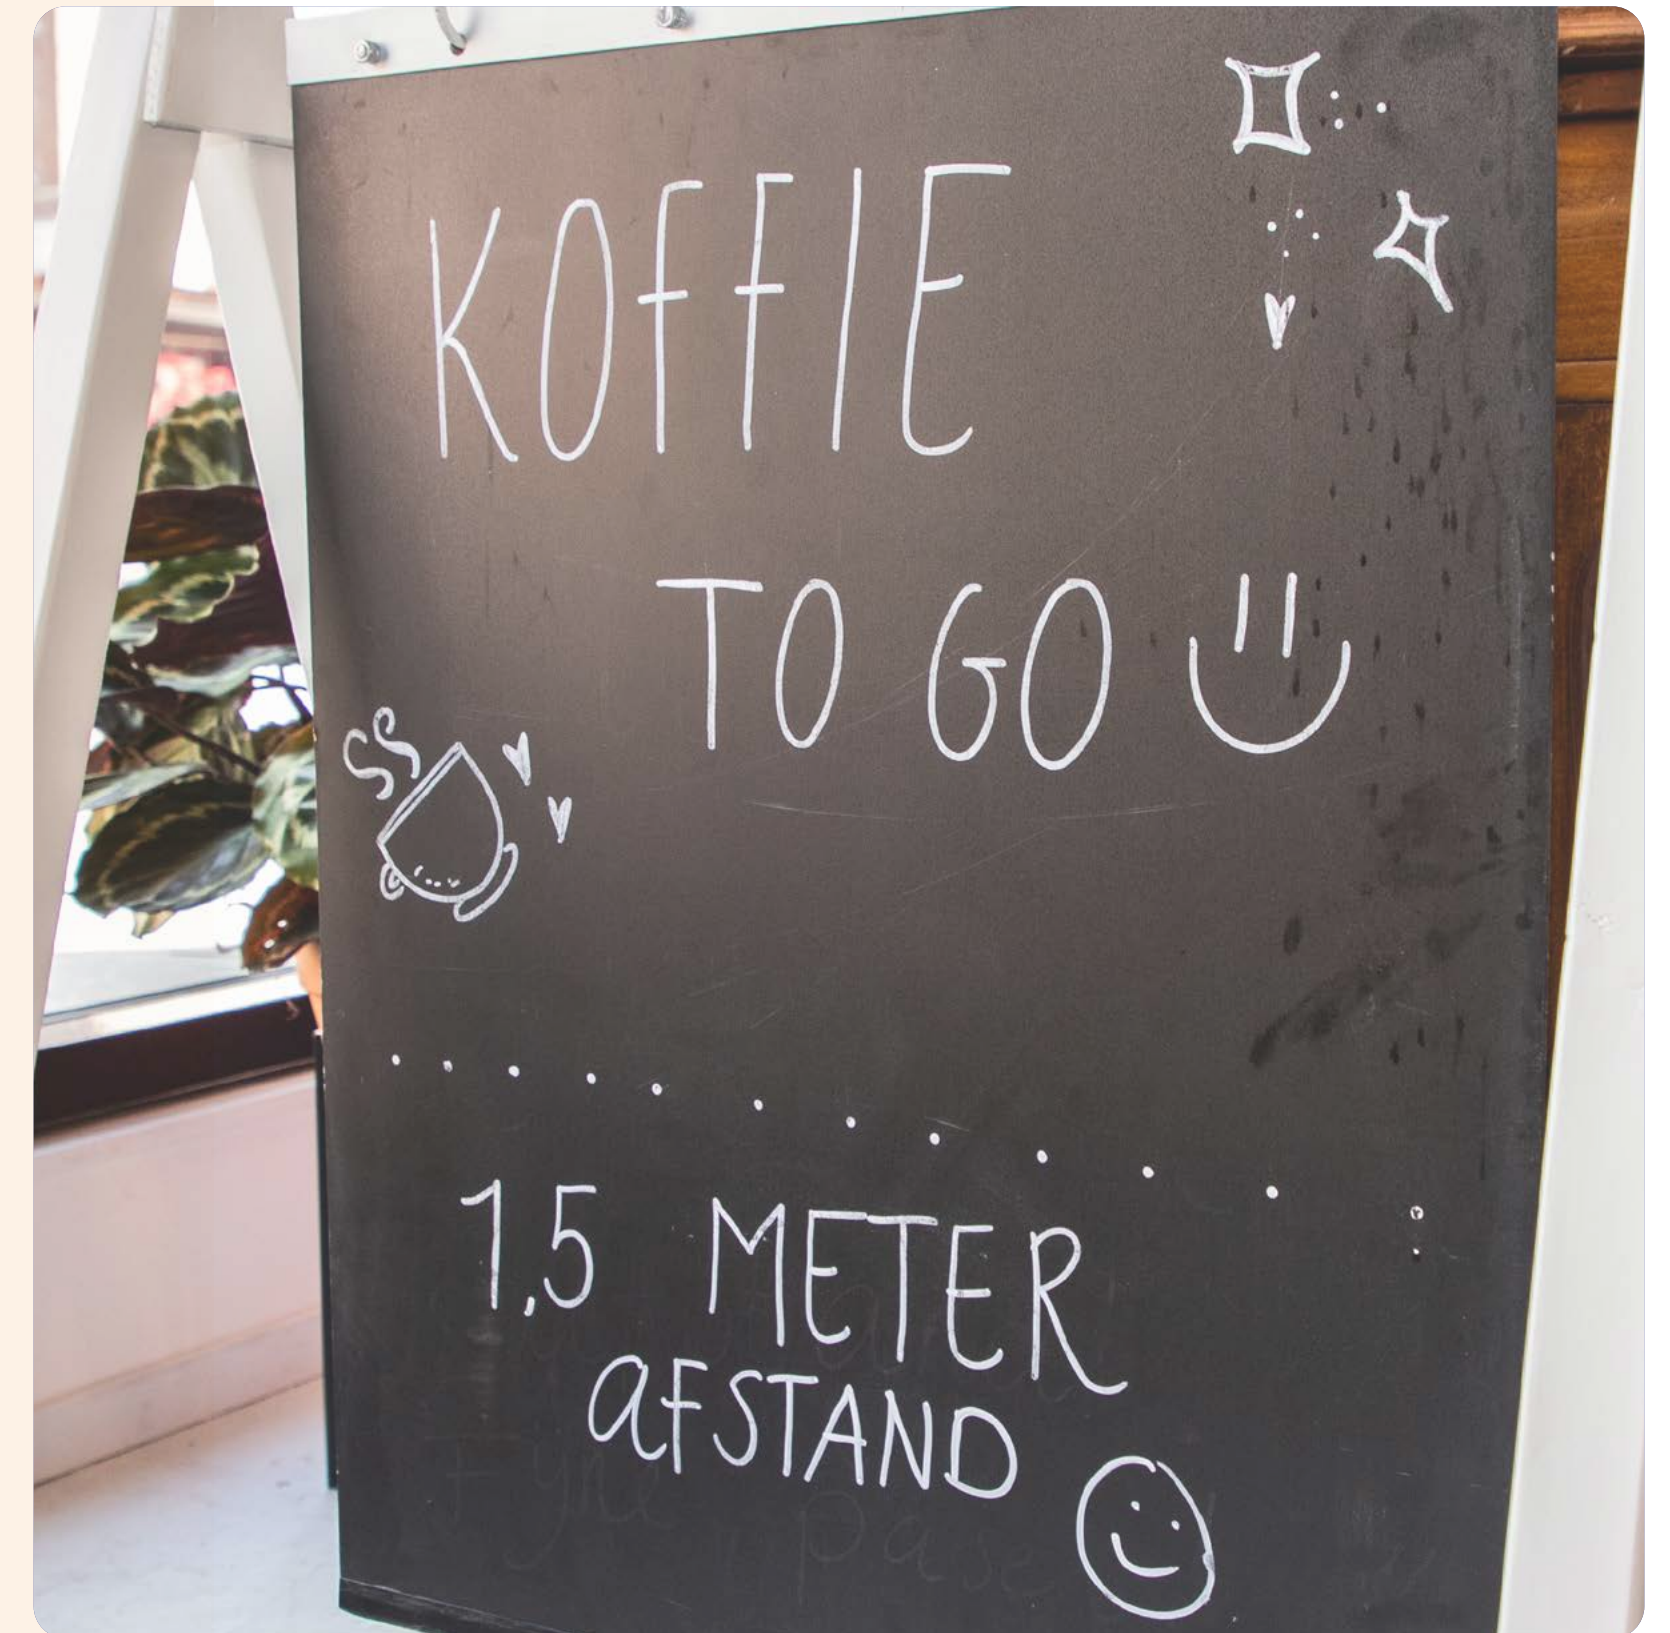 KOFFIE
TO GO
1,5 METER
aFSTAND